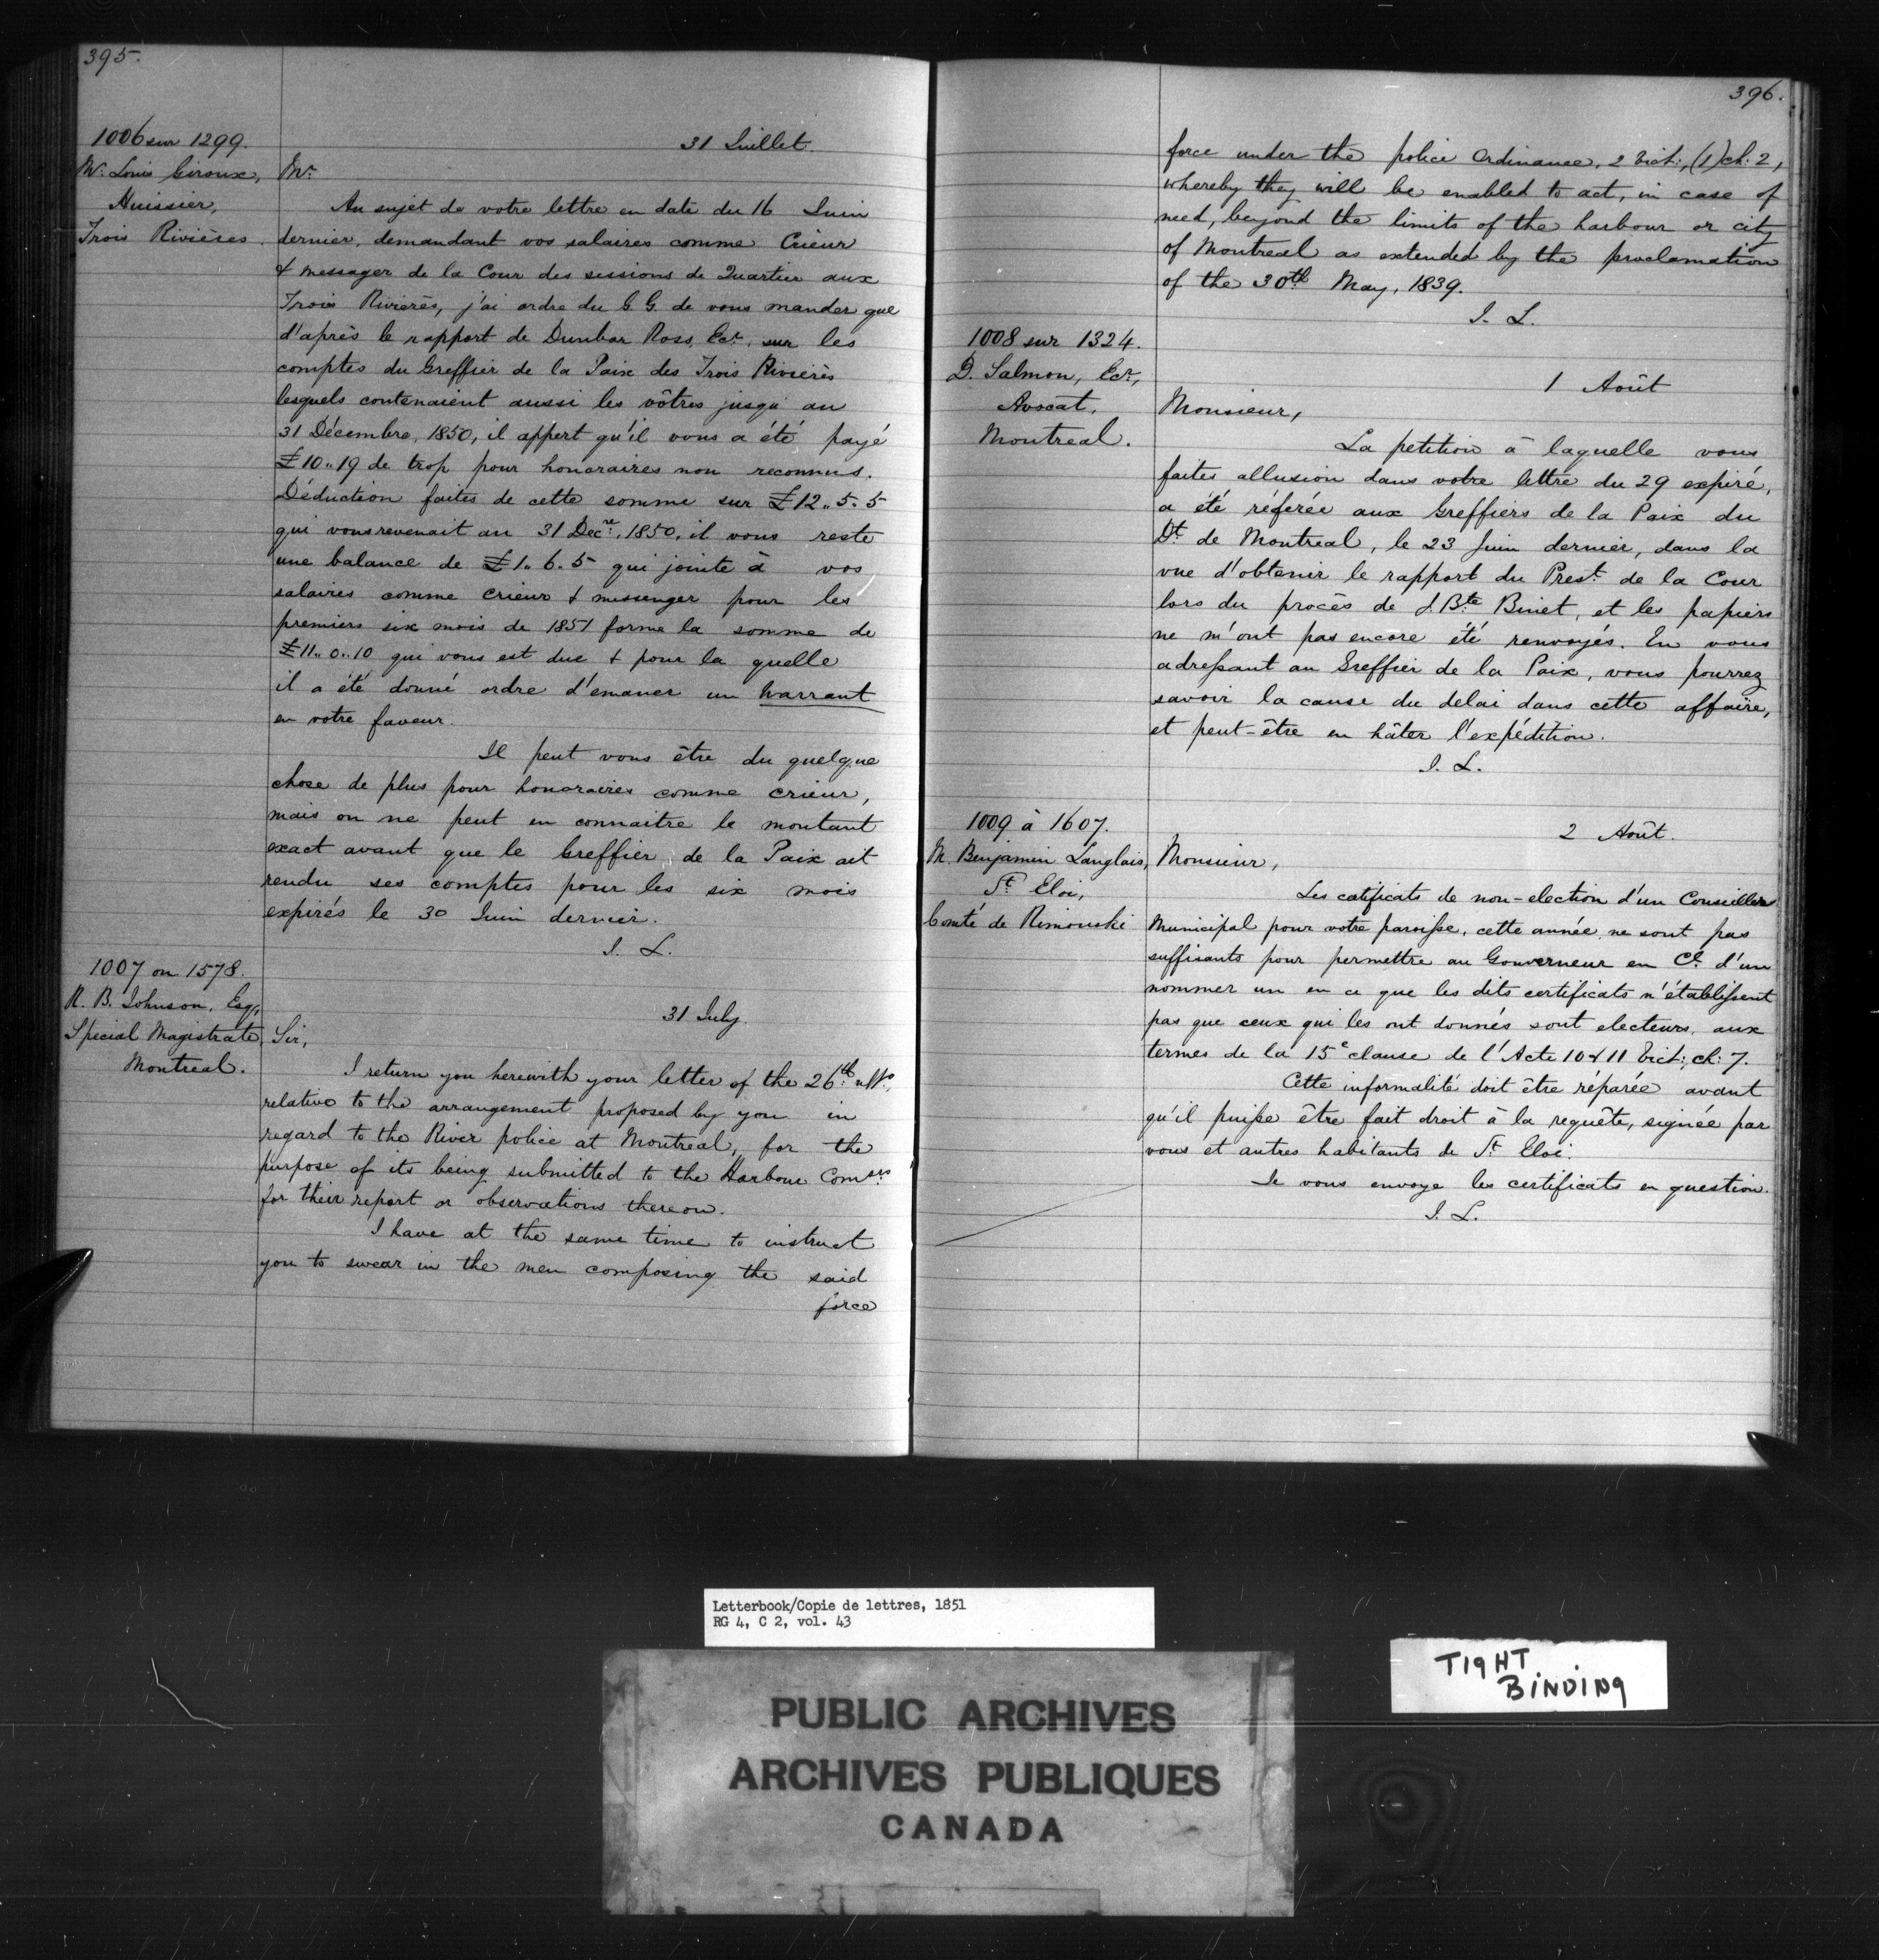 395.
1006 sur 1299.
Mr. Louis Giroux,
Huissier,
Trois Rivières.
31 Juillet.
Mr.
Au sujet de votre lettre en date du 16 Juin
dernier, demandant vos salaires comme Crieur
& messager de la Cour des sessions de Quartier aux
Trois Rivierès, j'ai ordre du G. G. de vous mander que
d'après le rapport de Dunbar Ross, Ecr. sur les
comptes du Greffier de la Paix des Trois Rivierès
lesquels contenaient aussi les vôtres jusqu'au
31 Décembre, 1850, il appert qu'il vous a été payé
£10..19 de trop pour honoraires non reconnus.
Déduction faites de cette somme sur £12..5.5
qui vous revenait au 31 Decre. 1850, il vous reste
une balance de £1..6.5 qui jointe à vos
salaires comme crieur & messenger pour les
premiers six mois de 1851 forme la somme de
£11..0..10 qui vous est due & pour la quelle
il a été donné ordre d'emaner un warrant
en votre faveur.
Il peut vous être du quelque
chose de plus pour honoraires comme crieur,
mais on ne peut en connaitre le montant
exact avant que le Greffier de la Paix ait
rendu ses comptes pour les six mois
expirés le 30 Juin dernier.
J. L.
1007 on 1578.
R. B. Johnson, Esq,
Special Magistrate,
Montreal.
31 July
Sir,
I return you herewith your letter of the 26th ulto,
relative to the arrangement proposed by you in
regard to the River police at Montreal, for the
purpose of its being submitted to the Harbour Comsrs
for their report or observations thereon.
I have at the same time to instruct
you to swear in the men composing the said
force
396.
force under the police Ordinance, 2 Vict:, (1) ch: 2,
whereby they will be enabled to act, in case of
need, beyond the limits of the harbour or city
of Montreal as extended by the proclamation
of the 30th May, 1839.
J. L.
1008 sur 1324.
D. Salmon, Ecr,
Avocat,
Montreal.
1 Août
Monsieur,
La petition à laquelle vous
faites allusion dans votre lettre du 29 expiré,
a été réferée aux Greffiers de la Paix du
Dt. de Montreal, le 23 Juin dernier, dans la
vue d'obtenir le rapport du Prest. de la Cour
lors du procès de J. Bte Binet, et les papiers
ne m'ont pas encore été renvoyés. En vous
adressant au Greffier de la Paix, vous pourrez
savoir la cause du delai dans cette affaire,
et peut-être en hâter l'expédition.
J. L.
1009 à 1607.
M. Benjamin Langlais,
St. Eloi,
Comté de Rimouski
2 Août.
Monsieur,
Les cetificats de non-election d'un Conseiller
Municipal pour votre paroisse, cette année ne sont pas
suffisants pour permettre au Gouverneur en Cl. d'un
nommer un en ce que les dits certificats n'établissent
pas que ceux qui les ont donnés sont electeurs, aux
termes de la 15e clause de l'Acte 10 & 11 Vict: ch: 7.
Cette informalité doit être réparée avant
qu'il puisse être fait droit à la requête, signée par
vous et autres habitants de St. Eloi.
Je vous envoye les certificats en question.
J. L.
Letterbook/Copie de lettres, 1851
RG 4, C 2, vol. 43
TIGHT
BINDING
PUBLIC ARCHIVES
ARCHIVES PUBLIQUES
CANADA